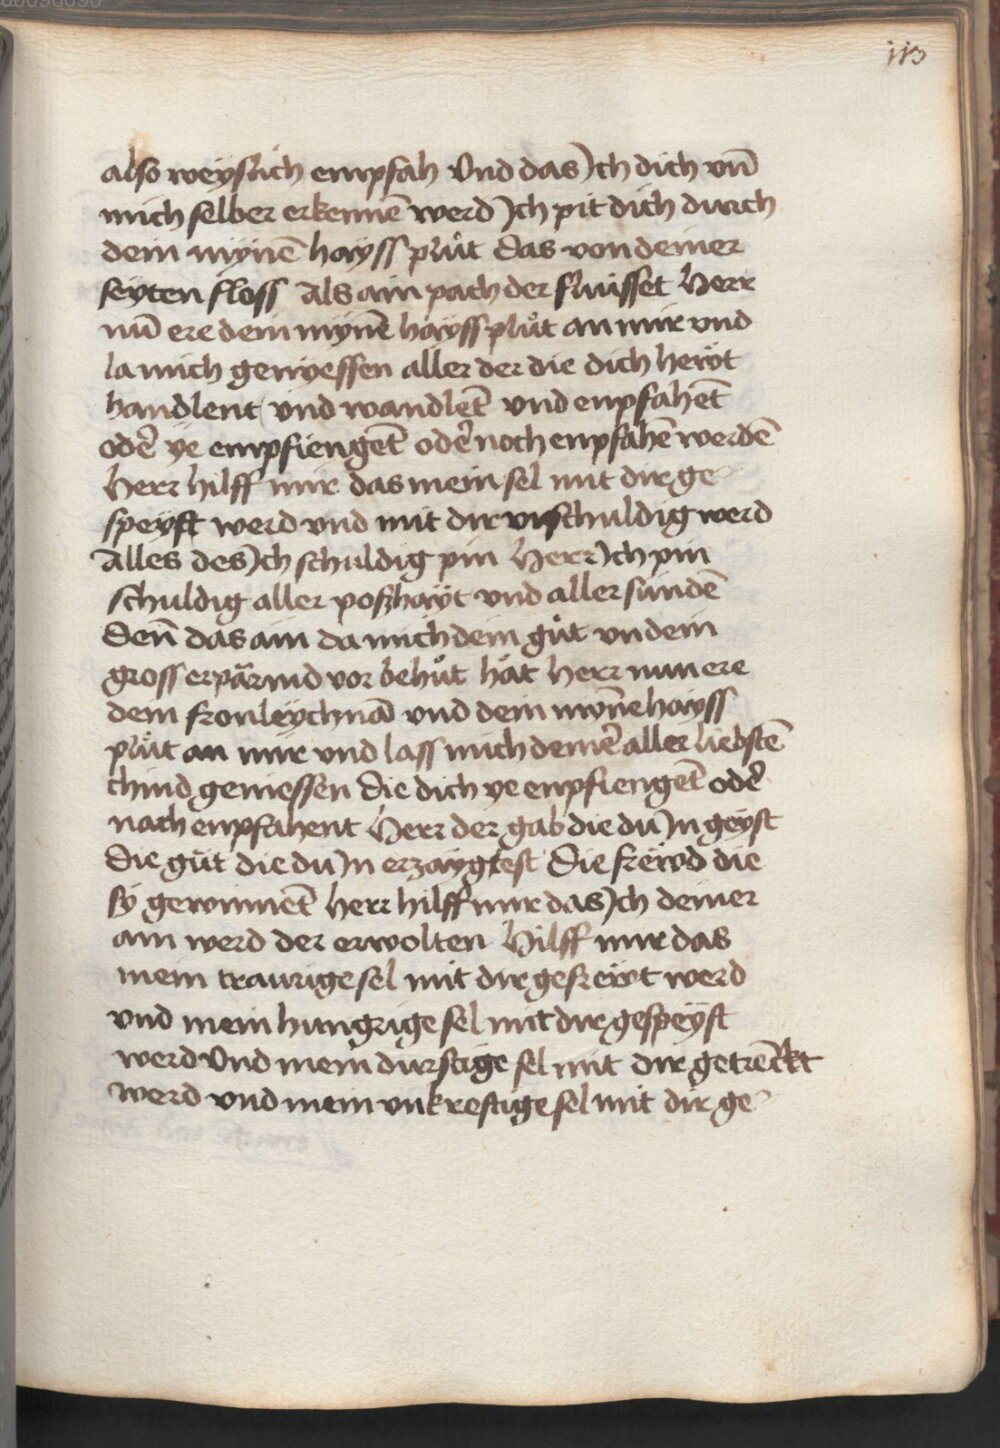 113
also weyslich empfah Vnd das Ich dich vn̄
mich selber erkennē werd Ich pit dich durch
dein mynē hayss plůt das von deiner
seyten floss als ain pach der flüisset Herr
nū ere dein mynē hayss plůt an mir vnd
la mich genyessen aller der die dich hewt
handlent vnd wandlēt vnd enpfahēt
odē ye empfiengēt odē noch enpfahē werdē
Herr hilff mir das mein sel mit dir ge
speyst werd vnd mit dir vnschuldig werd
alles des Ich schuldig pin Herr Ich pin
schuldig aller poßhayt vnd aller sundē
Den̄ das ain da mich dein gůt vn dein
gross erpärmd vor behůt hat Herr nun ere
dem fronleychnā vnd dein mynnē hayss
plůt an mir vnd lass mich deinē aller liebstē
chind geniessen die dich ye enpfiengēt odē
noch enpfahent Herr der gab die du In geyst
Die güt die du In erzaygtest Die frewd die
sy gewinnēt herr hilff mir das Ich deiner
ain werd der erwolten Hilff mir das
mein traurige sel mit dir gefrewt werd
vnd mein hungrige sel mit dir gespeyst
werd Vnd mein durstige sel mit dir getrēckt
werd vnd mein vnkreftige sel mit dir ge